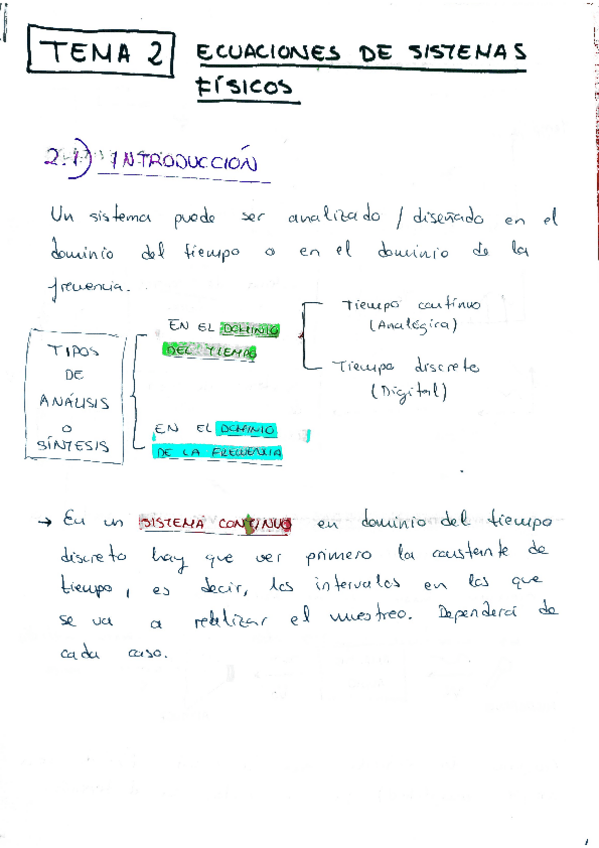 TEMA 2 ECUACIONES DE SISTEMAS
FÍSICOS
2.1) INTRODUCCIÓN
Un sistema puede ser analizado / diseñado en el
dominio del tiempo o en el dominio de la
frecuencia.
TIPOS
DE
ANÁLISIS
O
SÍNTESIS
EN EL DOMINIO
DEL TIEMPO
Tiempo contínuo
(Analógica)
Tiempo discreto
(Digital)
EN EL DOMINIO
DE LA FRECUENCIA
→ En un SISTEMA CONTINUO en dominio del tiempo
discreto hay que ver primero la constante de
tiempo, es decir, los intervalos en los que
se va a realizar el muestreo. Dependerá de
cada caso.